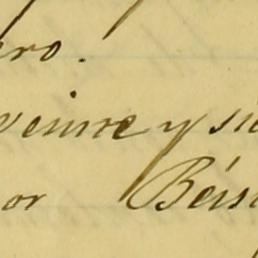 ero.
veinte y si
or Béis